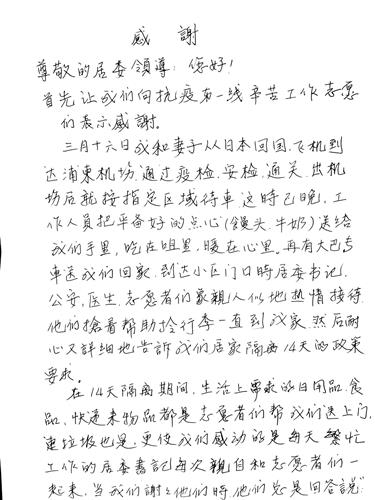 感 謝
尊敬的居委領導：您好！
首先让我们向抗疫苐一线辛苦工作志愿
们表示感謝。
三月十六日我和妻子从日本回国，飞机到
达浦東机场，通过疫检、安检、通关，出机
场后就按指定区域待车，这時已晚，工
作人员把平备好的点心(馒头、牛奶)送给
我们手里，吃在咀里，暖在心里。再有大巴专
車送我们回家，到达小区门口時居委书记、
公安、医生、志愿者们象親人似地热情接待，
他们搶着帮助拎行李一直到我家，然后耐
心又詳細地告訴我们居家隔离14天的政策
要求。
在14天隔离期间，生活上需求的日用品、食
品、快递来物品都是志愿者们帮我们送上门，
連垃圾也是，更使我们感动的是每天繁忙
工作的居委書記每次親自和志愿者们一
起来，当我们謝謝他们時他们总是回答說：